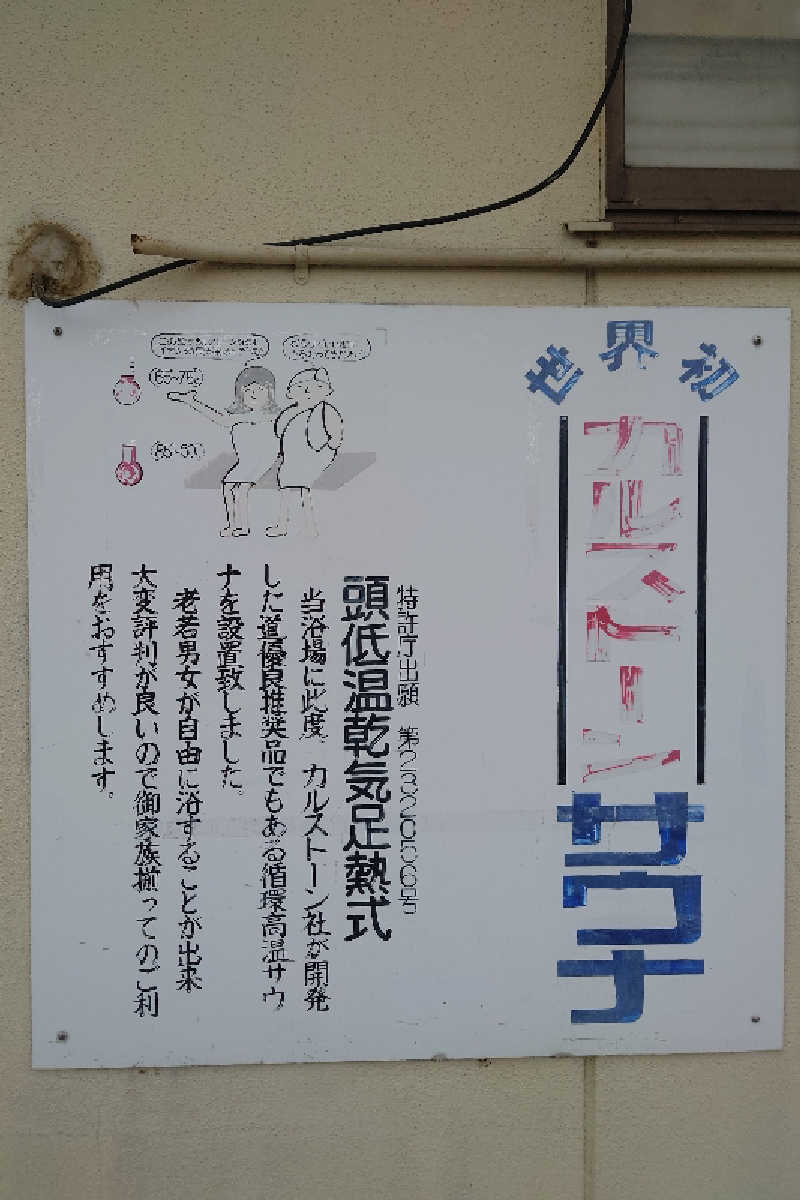 世界初
カルストーン
サウナ
特許庁出願 第232056号
頭低温乾気足熱式
当浴場に此度、カルストーン社が開発
した道優良推奨品でもある循環高温サウ
ナを設置致しました。
老若男女が自由に浴することが出来
大変評判が良いので御家族揃ってのご利
用をおすすめします。